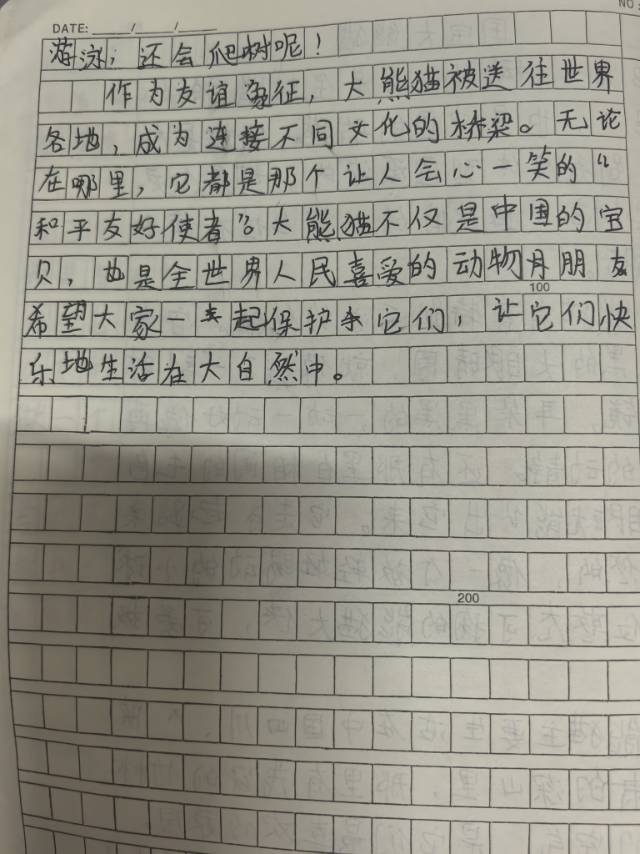 NO:
DATE: ___/___/___
游泳；还会爬树呢！
作为友谊象征，大熊猫被送往世界
各地，成为连接不同文化的桥梁。无论
在哪里，它都是那个让人会心一笑的“
和平友好使者”。大熊猫不仅是中国的宝
贝，也是全世界人民喜爱的动物朋友
100
希望大家一起保护它们，让它们快
乐地生活在大自然中。
200